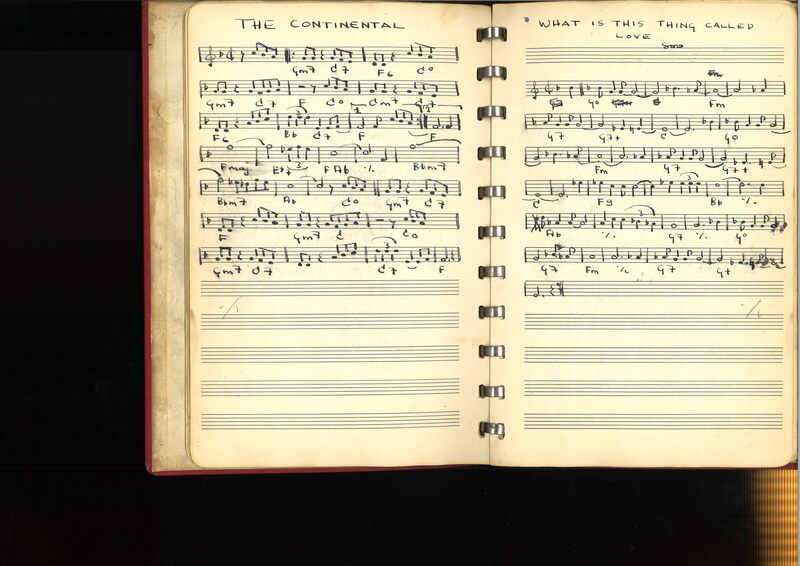 THE CONTINENTAL
Gm7 C7 F6 Co
Gm7 C7 F Co Gm7 C7
F6 Bb C7 F F
Fmaj F Ab ٪ Bbm7
Bbm7 Ab Co Gm7 C7
F Gm7 C Co
Gm7 C7 C7 F
WHAT IS THIS THING CALLED
LOVE
Go Fm
G7 G7+ C Go
Fm G7 G7+
C F9 Bb ٪
Ab ٪ G7 ٪ Go
G7 Fm ٪ G7 G+